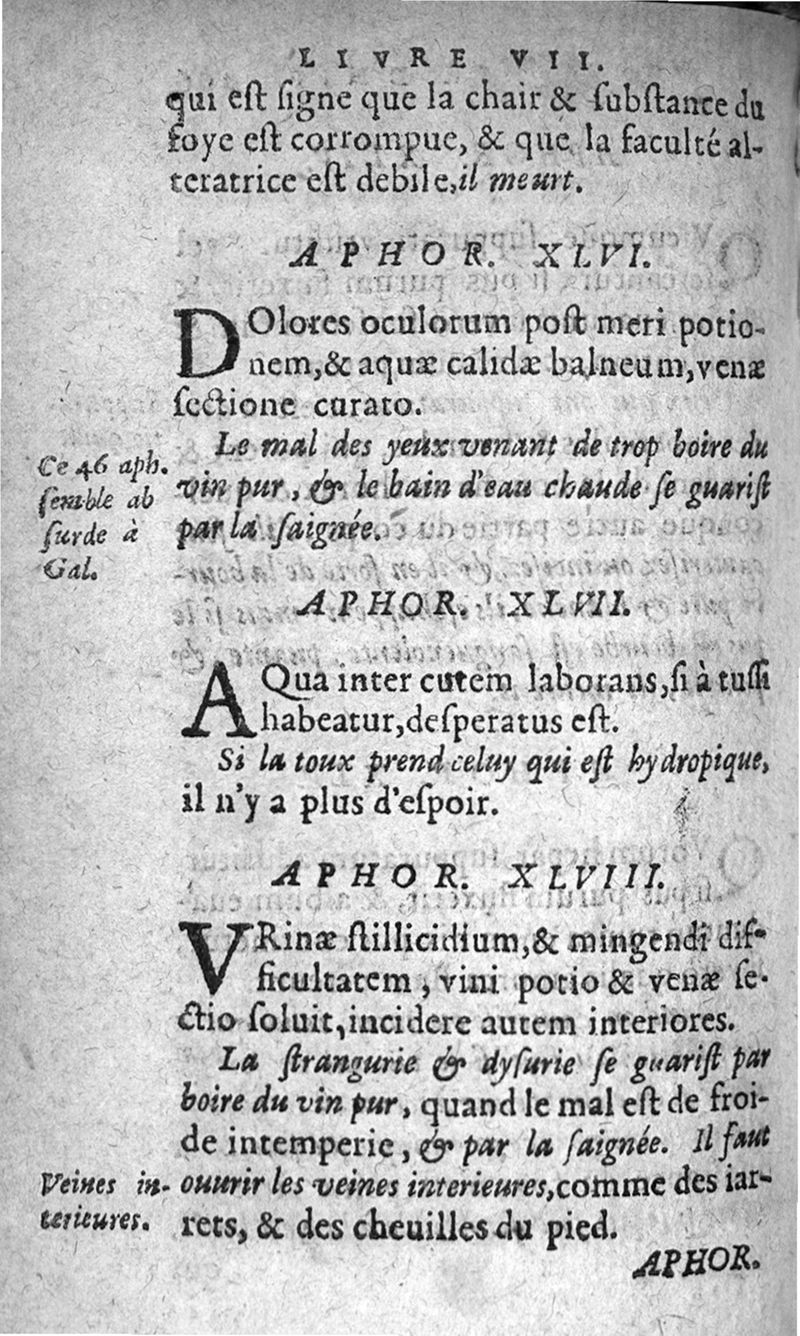 LIVRE VII.
qui est signe que la chair & substance du
foye est corrompue, & que la faculté al-
teratrice est debile, il meurt.
APHOR. XLVI.
DOlores oculorum post meri potio-
nem, & aquæ calidæ balneum, venæ
sectione curato.
Le mal des yeux venant de trop boire du
vin pur, & le bain d'eau chaude se guarist
par la saignée.
Ce 46 aph.
semble ab
surde à
Gal.
APHOR. XLVII.
AQua inter cutem laborans, si à tussi
habeatur, desperatus est.
Si la toux prend celuy qui est hydropique,
il n'y a plus d'espoir.
APHOR. XLVIII.
VRinæ stillicidium, & mingendi dif-
ficultatem, vini potio & venæ se-
ctio soluit, incidere autem interiores.
La strangurie & dysurie se guarist par
boire du vin pur, quand le mal est de froi-
de intemperie, & par la saignée. Il faut
ouurir les veines interieures, comme des iar-
rets, & des cheuilles du pied.
Veines in-
terieures.
APHOR.